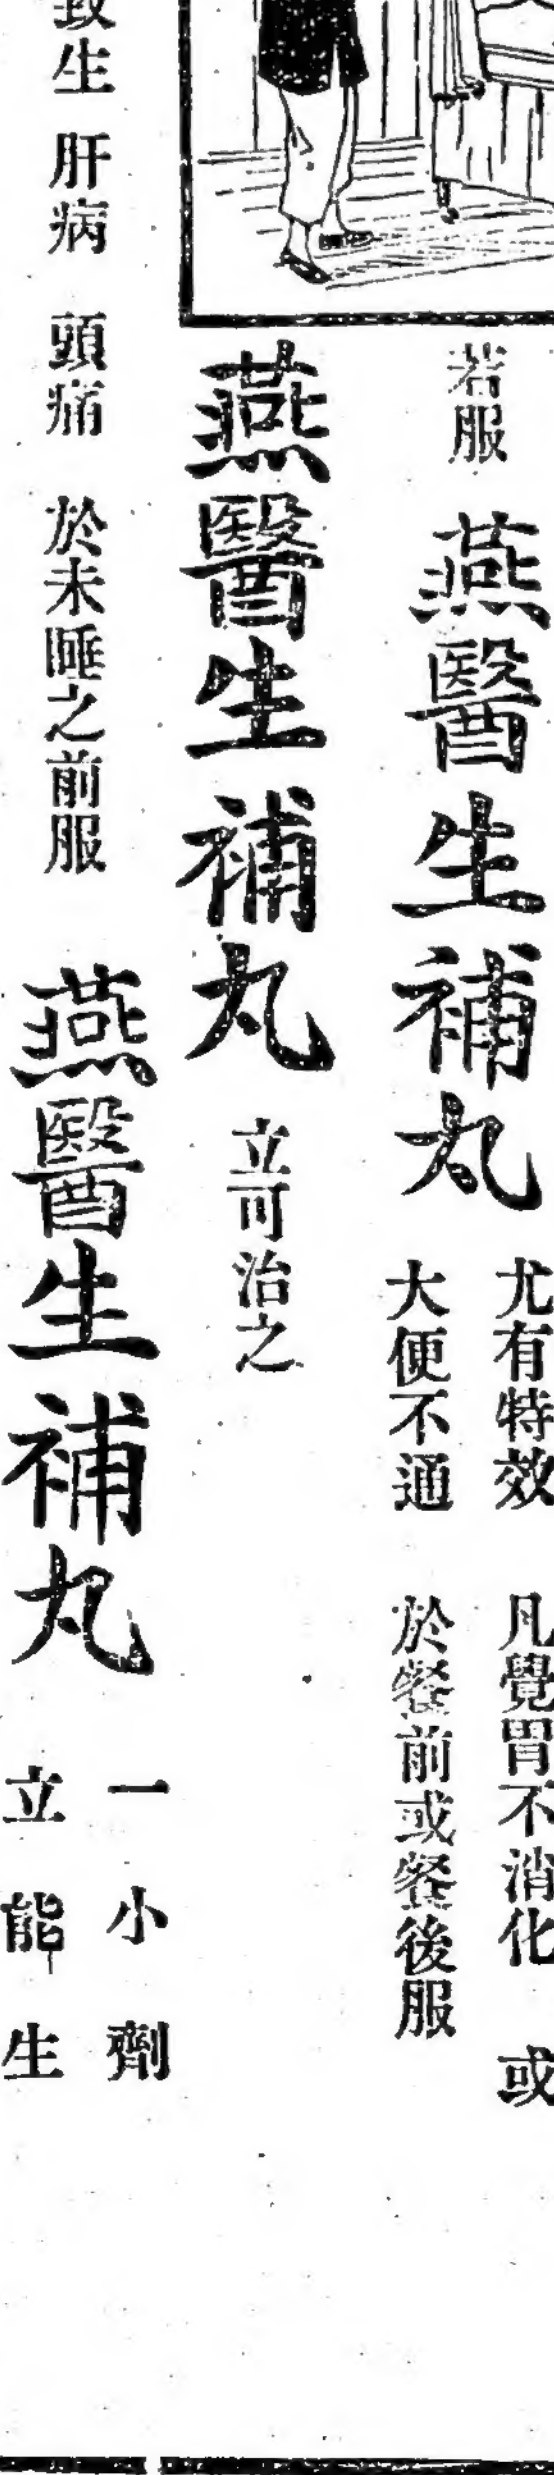 若服
燕醫生補丸
尤有特效
凡覺胃不消化 或
大便不通
於餐前或餐後服
燕醫生補丸
立可治之
致生 肝病 頭痛 於未睡之前服
燕醫生補丸
一小劑
立能生